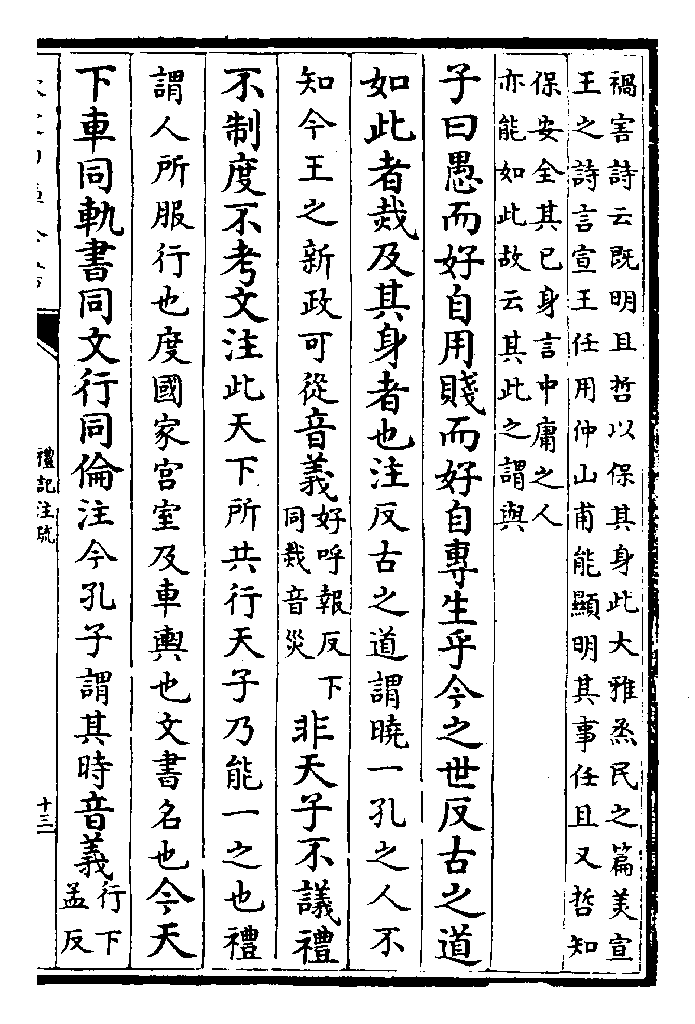 禍害詩云既明且哲以保其身此大雅烝民之篇美宣
王之詩言宣王任用仲山甫能顯明其事任且又哲知
保安全其已身言中庸之人
亦能如此故云其此之謂與
子曰愚而好自用賤而好自專生乎今之世反古之道
如此者烖及其身者也注反古之道謂曉一孔之人不
知今王之新政可從音義好呼報反下同烖音災非天子不議禮
不制度不考文注此天下所共行天子乃能一之也禮
謂人所服行也度國家宮室及車輿也文書名也今天
下車同軌書同文行同倫注今孔子謂其時音義行下孟反
禮記注疏
十三